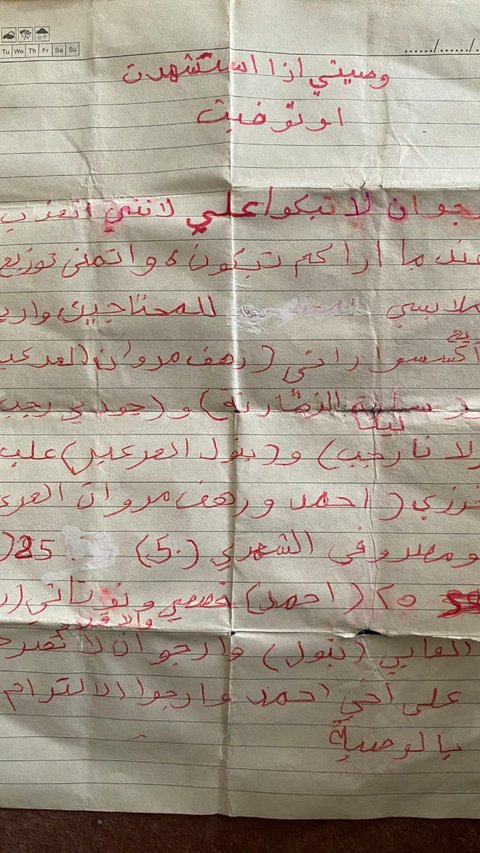 Tu We Th Fr Sa Su
....../....../
وصيتي إذا استشهدت
او توفيت
رجوا ان لا تبكوا علي لانني اتعذب
عندما اراكم تبكون ، واتمنى توزيع
ملابسي للمحتاجين
اكسسواراتي (رهف مروان العرعير
و (جودي رجب
لانا رجب) و (بتول العرعير) علب
خرزي (احمد ورهف مروان العرع
ومصروفي الشهري (50) 25
٢٥ (احمد) قصصي
العابي (بتول) وارجوا ان لا
على اخي احمد وارجوا الالتزام
بالوصية